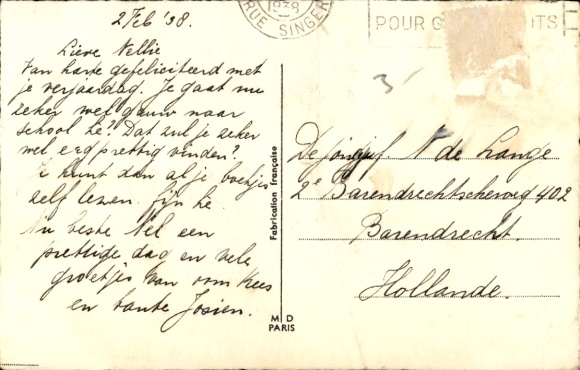 2 Feb '38.
Lieve Nellie
Van harte gefeliciteerd met
je verjaardag. Je gaat nu
zeker wel gauw naar
school hè? Dat zul je zeker
wel erg prettig vinden?
Je kunt dan al je boekjes
zelf lezen fijn hè.
Nu beste Nel een
prettige dag en vele
groetjes van oom Kees
en tante Josien.
Fabrication française
M D
PARIS
1938
RUE SINGER
POUR
3
De jongej. N de Lange
2e Barendrechtscheweg 402
Barendrecht.
Hollande.